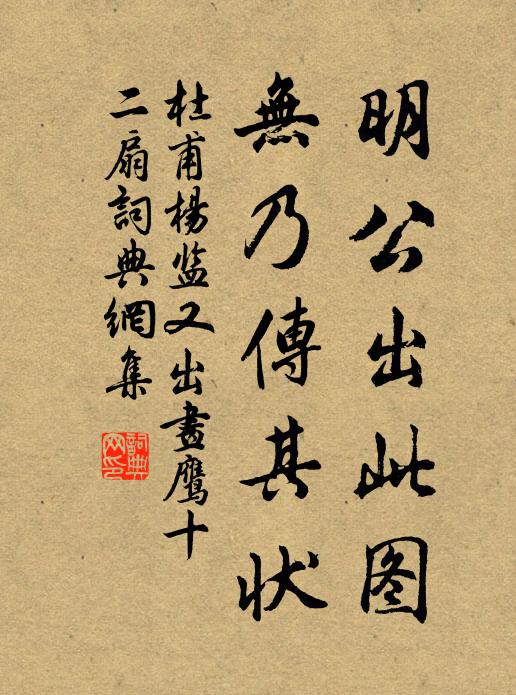 明公出此图
無乃傳其狀
杜甫楊监又出畫鹰十
二扇詞典網集
詞典
网印